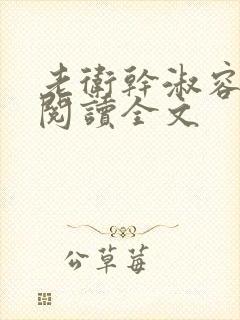 老衛幹淑容
閱讀全文
公草莓